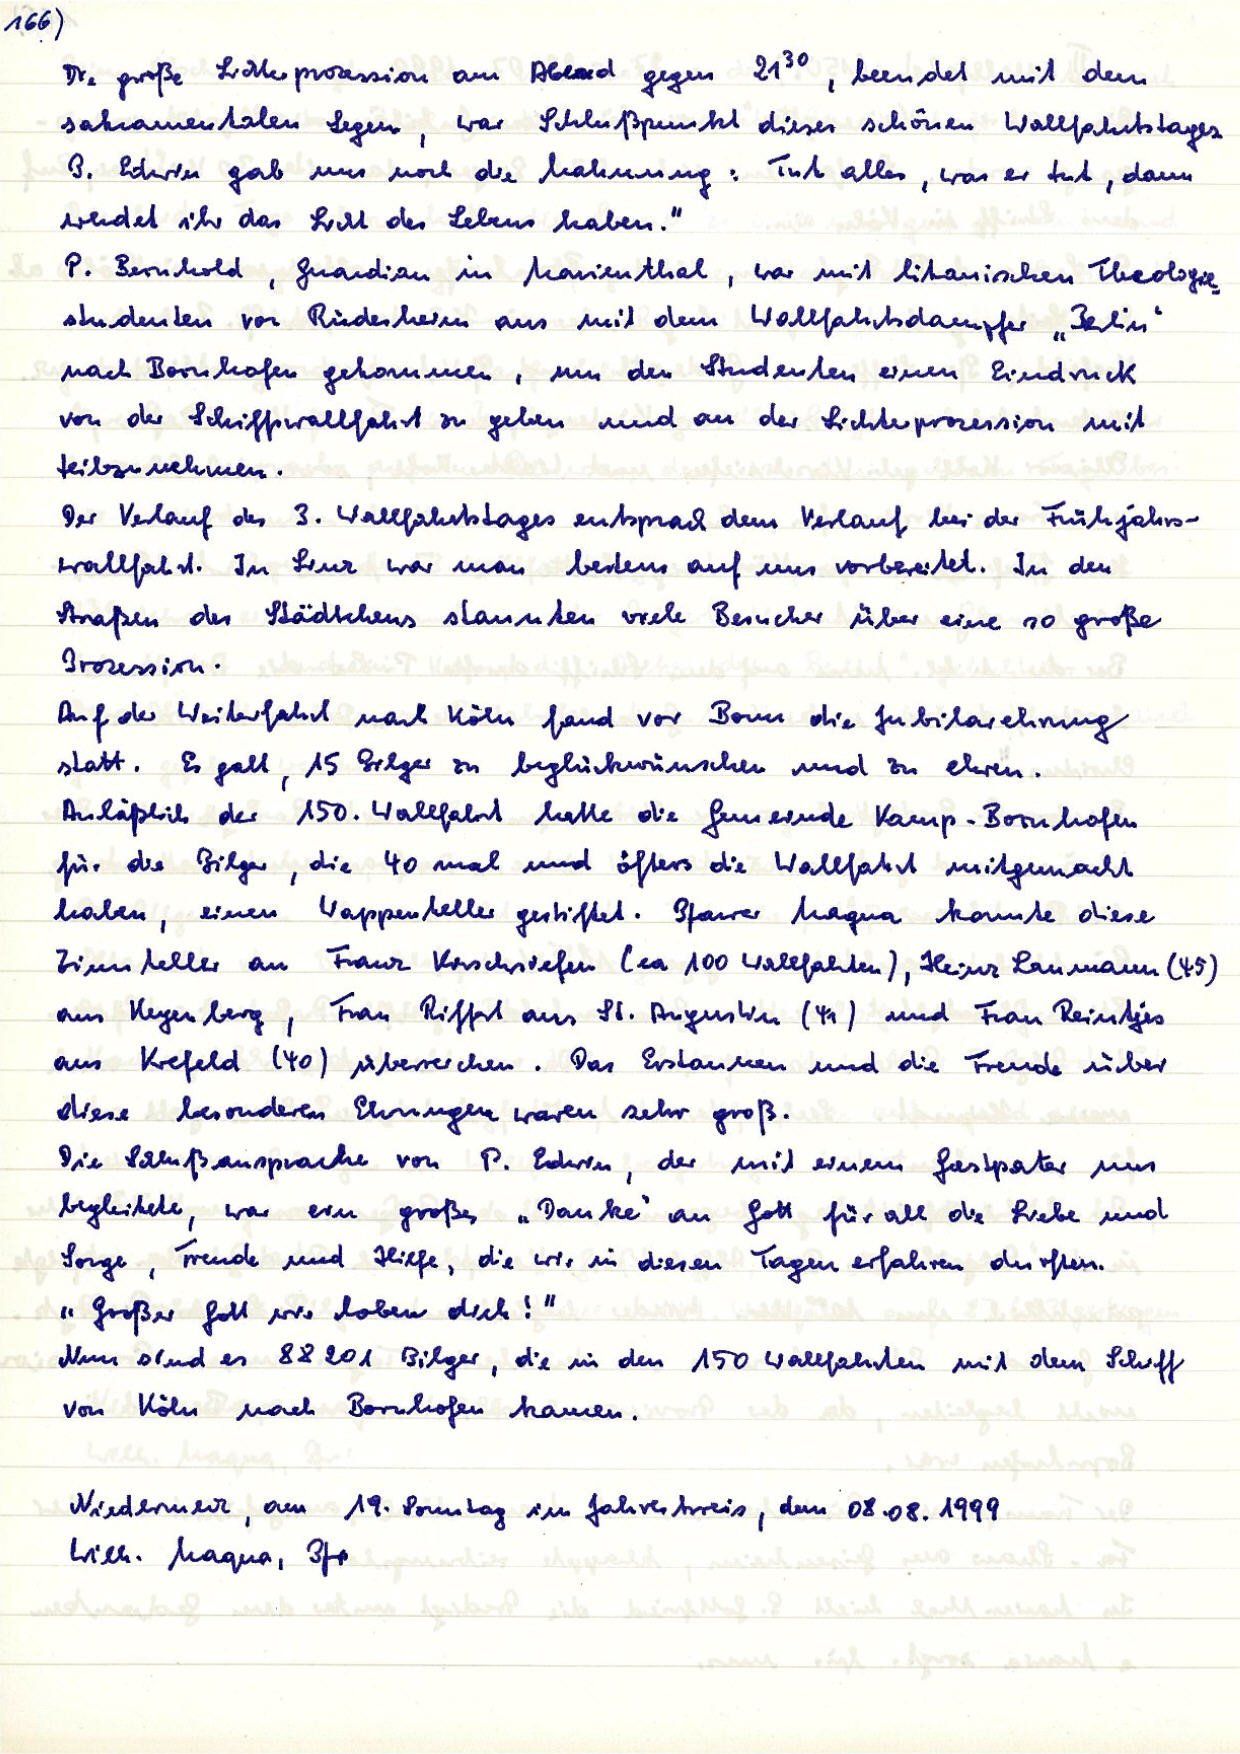 166)
Die große Lichterprozession am Abend gegen 21³⁰, beendet mit dem
sakramentalen Segen, war Schlußpunkt dieses schönen Wallfahrtstages
P. Edwin gab uns noch die Mahnung: Tut alles, was er tut, dann
werdet ihr das Licht des Lebens haben."
P. Bernhold, Guardian in Marienthal, war mit litauischen Theologie-
studenten von Rüdesheim aus mit dem Wallfahrtsdampfer „Berlin"
nach Bornhofen gekommen, um den Studenten einen Eindruck
von der Schiffswallfahrt zu geben und an der Lichterprozession mit
teilzunehmen.
Der Verlauf des 3. Wallfahrtstages entsprach dem Verlauf bei der Frühjahrs-
wallfahrt. In Linz war man bestens auf uns vorbereitet. In den
Straßen des Städtchens staunten viele Besucher über eine so große
Prozession.
Auf der Weiterfahrt nach Köln fand vor Bonn die Jubilarehrung
statt. Es galt, 15 Pilger zu beglückwünschen und zu ehren.
Anläßlich der 150. Wallfahrt hatte die Gemeinde Kamp-Bornhofen
für die Pilger, die 40 mal und öfters die Wallfahrt mitgemacht
haben, einen Wappenteller gestiftet. Pfarrer Maqua konnte diese
Zinnteller an Franz (ca 100 Wallfahrten), Heinz Laumann (45)
aus Keyenberg, Frau aus St. Augustin (41) und Frau Reintjes
aus Krefeld (40) überreichen. Das Erstaunen und die Freude über
diese besonderen Ehrungen waren sehr groß.
Die Schlußansprache von P. Edwin, der mit einem Gastpater uns
begleitete, war ein großes „Danke" an Gott für all die Liebe und
Sorge, Freude und Hilfe, die wir in diesen Tagen erfahren durften.
„Großer Gott wir loben dich!"
Nun sind es 88201 Pilger, die in den 150 Wallfahrten mit dem Schiff
von Köln nach Bornhofen kamen.
Niedermerz, am 19. Sonntag im Jahreskreis, dem 08.08.1999
Wilh. Maqua, Pfr